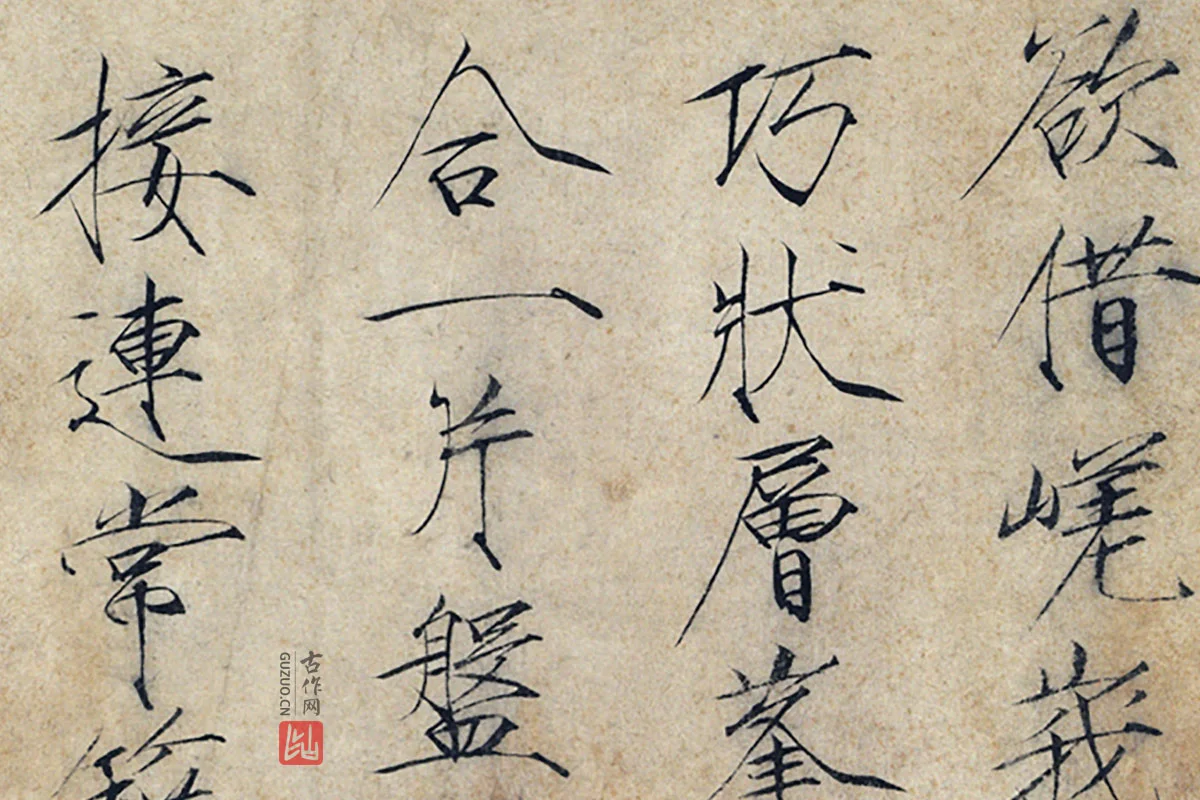 欲借嵯峩
巧狀層峯
合一片盤
接連常
古作网
GUZUO.CN